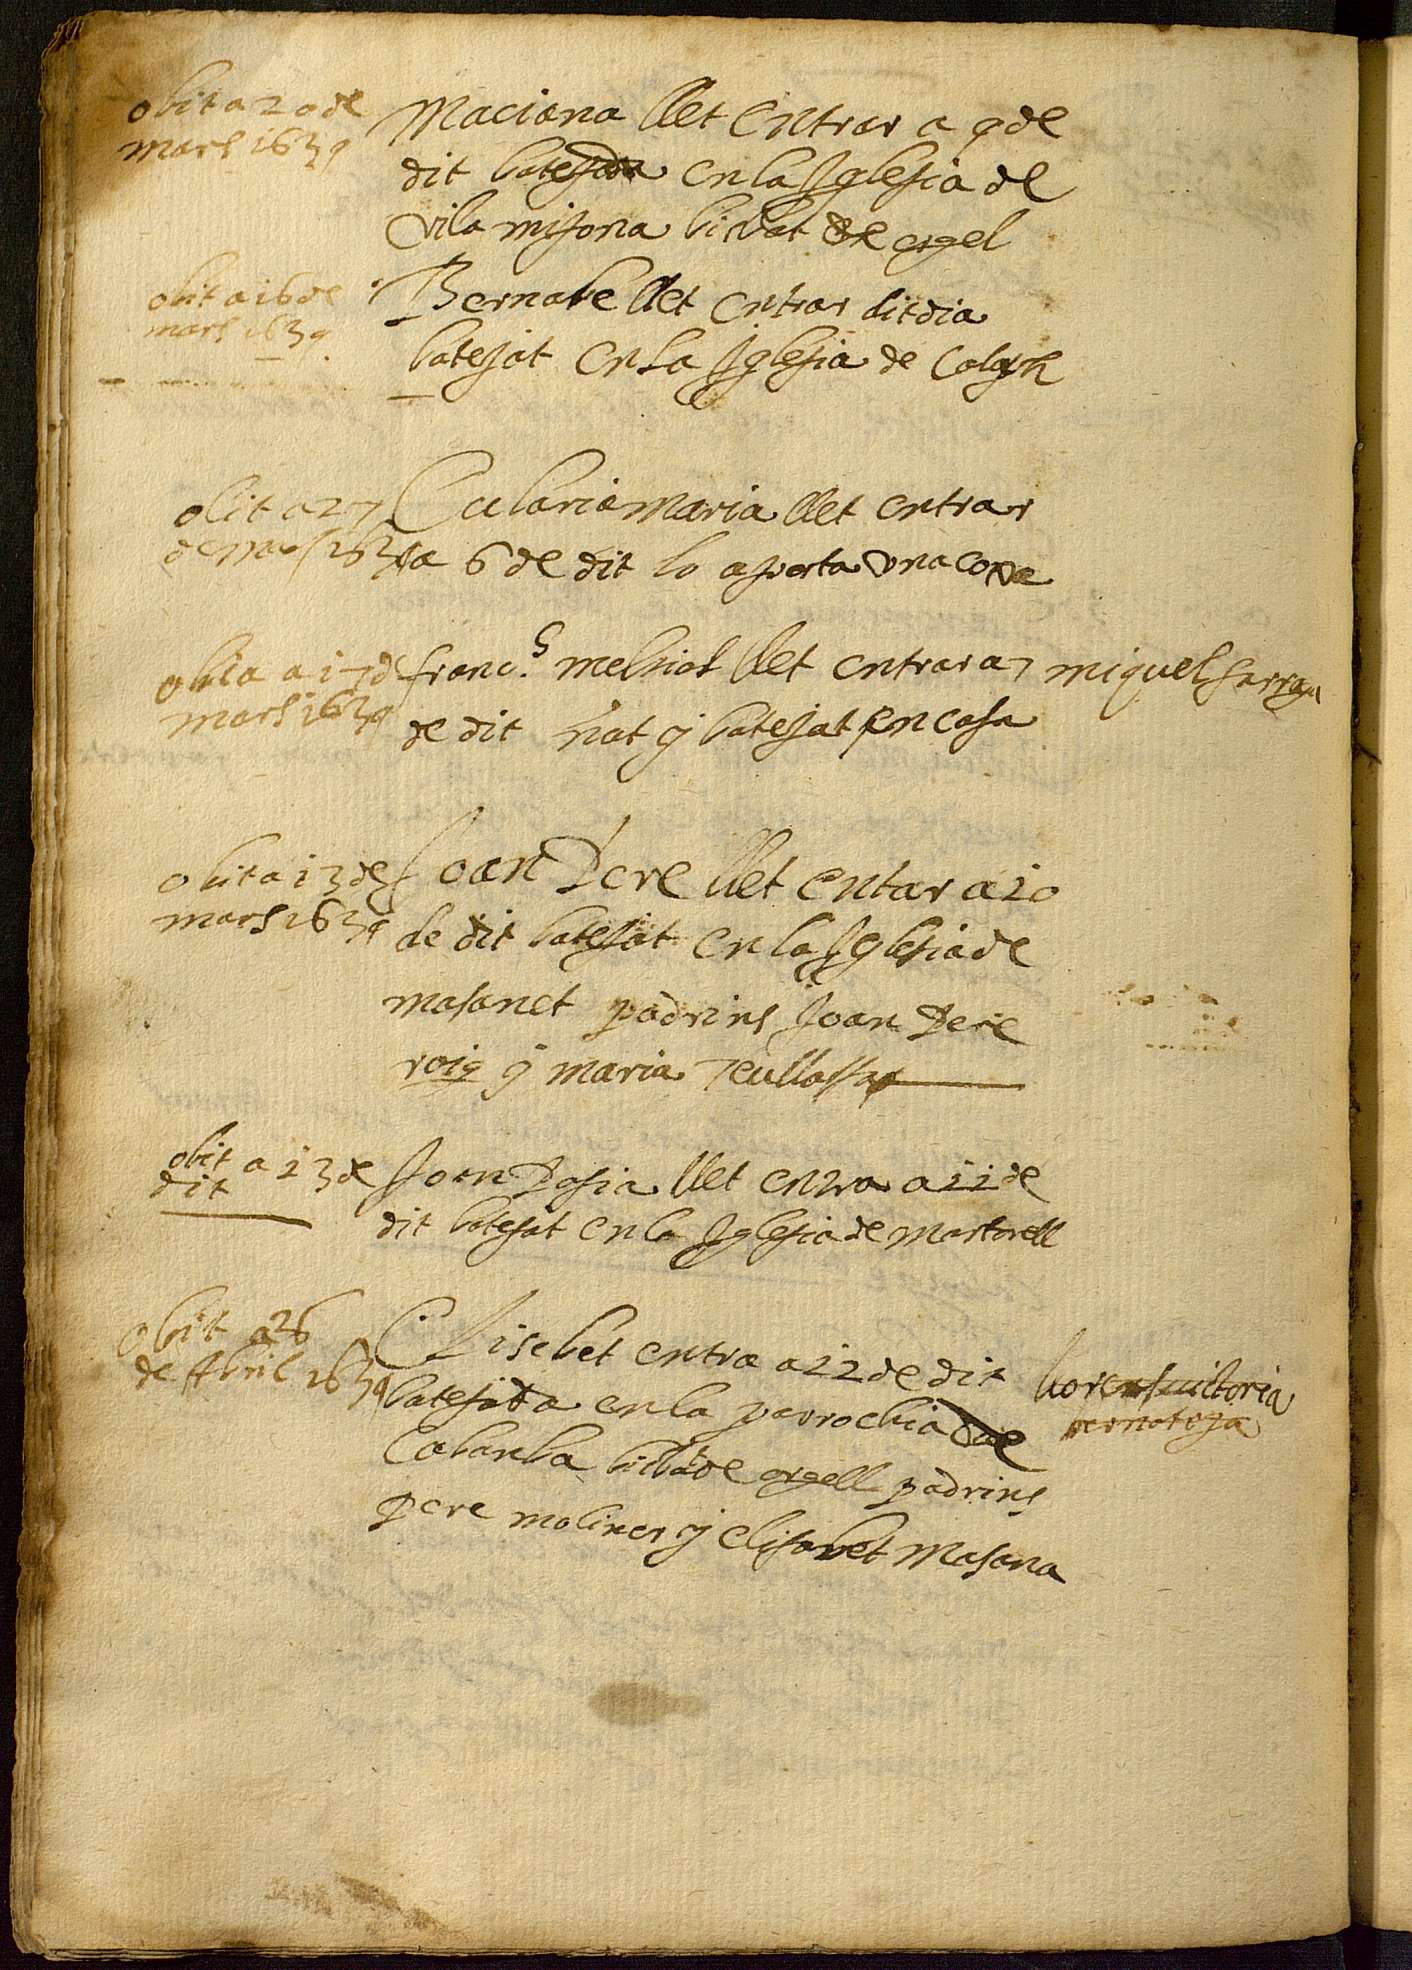 obit a 20 de
mars 1639
Maciana llet entrar a 9 de
dit batejada en la Iglesia de
vila mijona bisbat de orgel
obit a 16 de
mars 1639
Bernabe llet entrar dit dia
batejat en la Iglesia de
obit a 27
de mars 163
Eularia Maria llet entrar
a 6 de dit lo aporta una cove
obit a 17 d
mars 1639
franc.h melsiol llet entrar a 7
miquel
de dit nat y batejat en casa
obit a 13 de
mars 1639
Joan Pere llet entar a 10
de dit batejat en la Iglesia de
masanet padrins Joan Pere
roig y maria
obit a 13 de
dit
Joan Pasia llet entra a 11 de
dit batejat en la Iglesia de Martorell
obit a 26
de Abril 1639
Elisebet entra a 12 de dit
batejada en la parrochia de
bisbat de orgell padrins
pere moliner y elisabet Masana